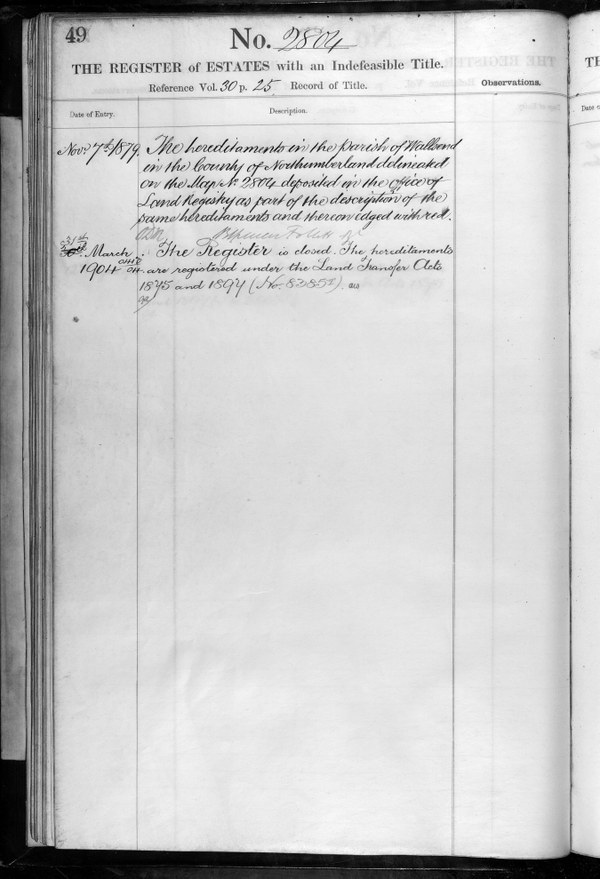 49
No. 2804
THE REGISTER of ESTATES with an Indefeasible Title.
Reference Vol. 30 p. 25 Record of Title.
Observations.
Date of Entry.
Description.
Novr 7th 1879. The hereditaments in the parish of Wallsend
in the County of Northumberland delineated
on the Map No 2804 deposited in the office of
Land Registry as part of the description of the
same hereditaments and thereon edged with red.
31st March The Register is closed. The hereditaments
1904 are registered under the Land Transfer Acts
1875 and 1897
TH
Date of